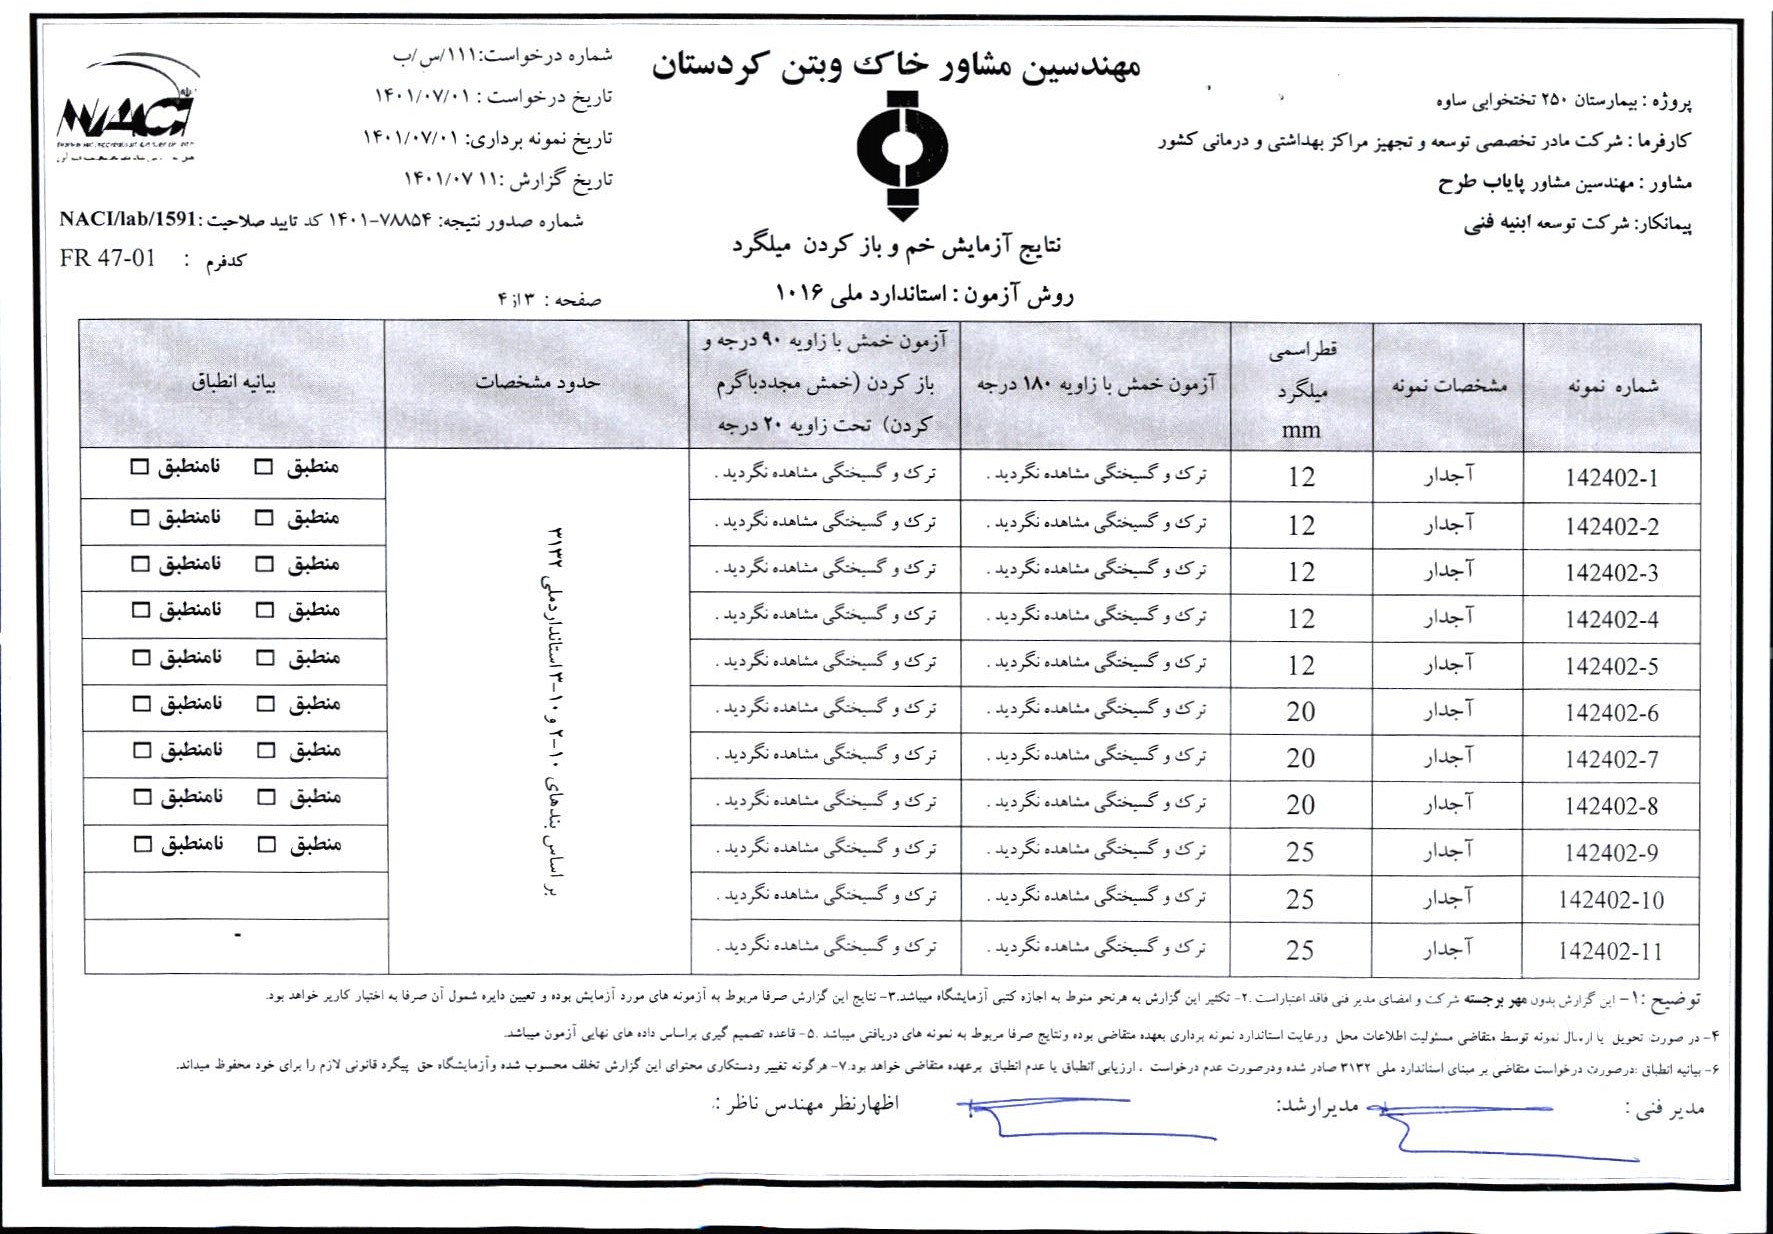 مهندسین مشاور خاک وبتن کردستان
پروژه : بیمارستان ۲۵۰ تختخوابی ساوه
کارفرما : شرکت مادر تخصصی توسعه و تجهیز مراکز بهداشتی و درمانی کشور
مشاور : مهندسین مشاور پایاب طرح
پیمانکار: شرکت توسعه ابنیه فنی
شماره درخواست:۱۱۱/س/ب
تاریخ درخواست : ۱۴۰۱/۰۷/۰۱
تاریخ نمونه برداری: ۱۴۰۱/۰۷/۰۱
تاریخ گزارش :۱۴۰۱/۰۷/۱۱
شماره صدور نتیجه: ۷۸۸۵۴-۱۴۰۱ کد تایید صلاحیت :NACI/lab/1591
کدفرم : FR 47-01
صفحه : ۳ از ۴
NACI
نتایج آزمایش خم و باز کردن میلگرد
روش آزمون : استاندارد ملی ۱۰۱۶
شماره نمونه | مشخصات نمونه | قطراسمی میلگرد mm | آزمون خمش با زاویه ۱۸۰ درجه | آزمون خمش با زاویه ۹۰ درجه و باز کردن (خمش مجددباگرم کردن) تحت زاویه ۲۰ درجه | حدود مشخصات | بیانیه انطباق
142402-1 آجدار 12 ترک و گسیختگی مشاهده نگردید . ترک و گسیختگی مشاهده نگردید . منطبق □ نامنطبق □
142402-2 آجدار 12 ترک و گسیختگی مشاهده نگردید . ترک و گسیختگی مشاهده نگردید . منطبق □ نامنطبق □
142402-3 آجدار 12 ترک و گسیختگی مشاهده نگردید . ترک و گسیختگی مشاهده نگردید . منطبق □ نامنطبق □
142402-4 آجدار 12 ترک و گسیختگی مشاهده نگردید . ترک و گسیختگی مشاهده نگردید . منطبق □ نامنطبق □
142402-5 آجدار 12 ترک و گسیختگی مشاهده نگردید . ترک و گسیختگی مشاهده نگردید . منطبق □ نامنطبق □
142402-6 آجدار 20 ترک و گسیختگی مشاهده نگردید . ترک و گسیختگی مشاهده نگردید . منطبق □ نامنطبق □
142402-7 آجدار 20 ترک و گسیختگی مشاهده نگردید . ترک و گسیختگی مشاهده نگردید . منطبق □ نامنطبق □
142402-8 آجدار 20 ترک و گسیختگی مشاهده نگردید . ترک و گسیختگی مشاهده نگردید . منطبق □ نامنطبق □
142402-9 آجدار 25 ترک و گسیختگی مشاهده نگردید . ترک و گسیختگی مشاهده نگردید . منطبق □ نامنطبق □
142402-10 آجدار 25 ترک و گسیختگی مشاهده نگردید . ترک و گسیختگی مشاهده نگردید .
142402-11 آجدار 25 ترک و گسیختگی مشاهده نگردید . ترک و گسیختگی مشاهده نگردید . -
بر اساس بندهای ۱۰-۲ و ۱۰-۳ استانداردملی ۳۱۳۲
توضیح :۱- این گزارش بدون مهر برجسته شرکت و امضای مدیر فنی فاقد اعتباراست .۲- تکثیر این گزارش به هرنحو منوط به اجازه کتبی آزمایشگاه میباشد.۳- نتایج این گزارش صرفا مربوط به آزمونه های مورد آزمایش بوده و تعیین دایره شمول آن صرفا به اختیار کاربر خواهد بود.
۴- در صورت تحویل یا ارسال نمونه توسط متقاضی مسئولیت اطلاعات محل ورعایت استاندارد نمونه برداری بعهده متقاضی بوده ونتایج صرفا مربوط به نمونه های دریافتی میباشد .۵- قاعده تصمیم گیری براساس داده های نهایی آزمون میباشد.
۶- بیانیه انطباق :درصورت درخواست متقاضی بر مبنای استاندارد ملی ۳۱۳۲ صادر شده ودرصورت عدم درخواست ، ارزیابی انطباق یا عدم انطباق برعهده متقاضی خواهد بود.۷- هرگونه تغییر ودستکاری محتوای این گزارش تخلف محسوب شده وآزمایشگاه حق پیگرد قانونی لازم را برای خود محفوظ میداند.
مدیر فنی : مدیرارشد: اظهارنظر مهندس ناظر :